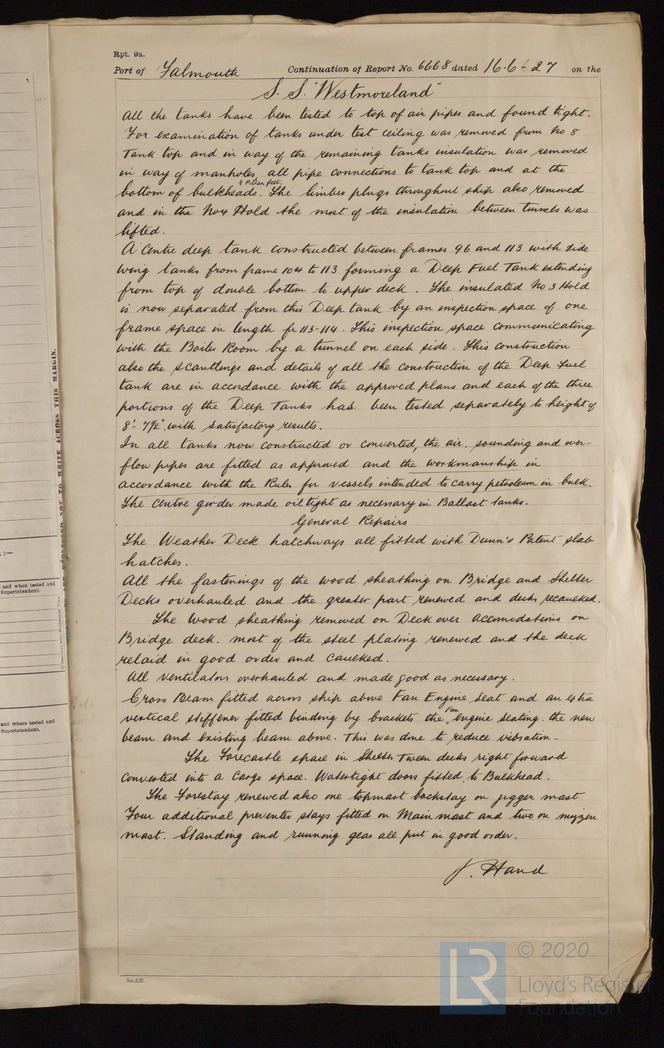 Rpt. 9a.
Port of Falmouth Continuation of Report No. 6668 dated 16-6-27 on the
S.S. "Westmoreland"
All the tanks have been tested to top of air pipes and found tight.
For examination of tanks under test ceiling was removed from No 8
Tank top and in way of the remaining tanks insulation was removed
in way of manholes, all pipe connections to tank top and at the
bottom of bulkheads & Pillar feet. The limber plugs throughout ship also removed
and in the No 4 Hold the most of the insulation between tunnels was
lifted.
A Centre deep tank constructed between frames 96 and 113 with side
wing tanks from frame 104 to 113 forming a Deep Fuel Tank extending
from top of double bottom to upper deck. The insulated No 3 Hold
is now separated from this Deep tank by an inspection space of one
frame space in length fr 113-114. This inspection space communicating
with the Boiler Room by a tunnel on each side. This construction
also the scantlings and details of all the construction of the Deep Fuel
tank are in accordance with the approved plans and each of the three
portions of the Deep Tanks has been tested separately to height of
8'- 7½" with satisfactory results.
In all tanks now constructed or converted, the air, sounding and over-
flow pipes are fitted as approved and the workmanship in
accordance with the Rules for vessels intended to carry petroleum in bulk.
The centre girder made oil tight as necessary in Ballast tanks.
General Repairs
The Weather Deck hatchways all fitted with Dunn's Patent slab
hatches.
All the fastenings of the wood sheathing on Bridge and Shelter
Decks overhauled and the greater part renewed and decks recaulked.
The wood sheathing removed on Deck over accomodations on
Bridge deck. most of the steel plating renewed and the deck
relaid in good order and caulked.
All ventilators overhauled and made good as necessary.
Cross Beam fitted across ship above Fan Engine seat and an extra
vertical stiffener fitted binding by brackets the Fan engine seating. the new
beam and existing beam above. This was done to reduce vibration.
The Forecastle space in Shelter Tween decks right forward
converted into a cargo space. Watertight doors fitted to Bulkhead.
The Forestay renewed also one topmast backstay on jigger mast.
Four additional preventer stays fitted on Main mast and two on mizzen
mast. Standing and running gear all put in good order.
J. Hand
© 2020
LR
Lloyd's Register
Foundation